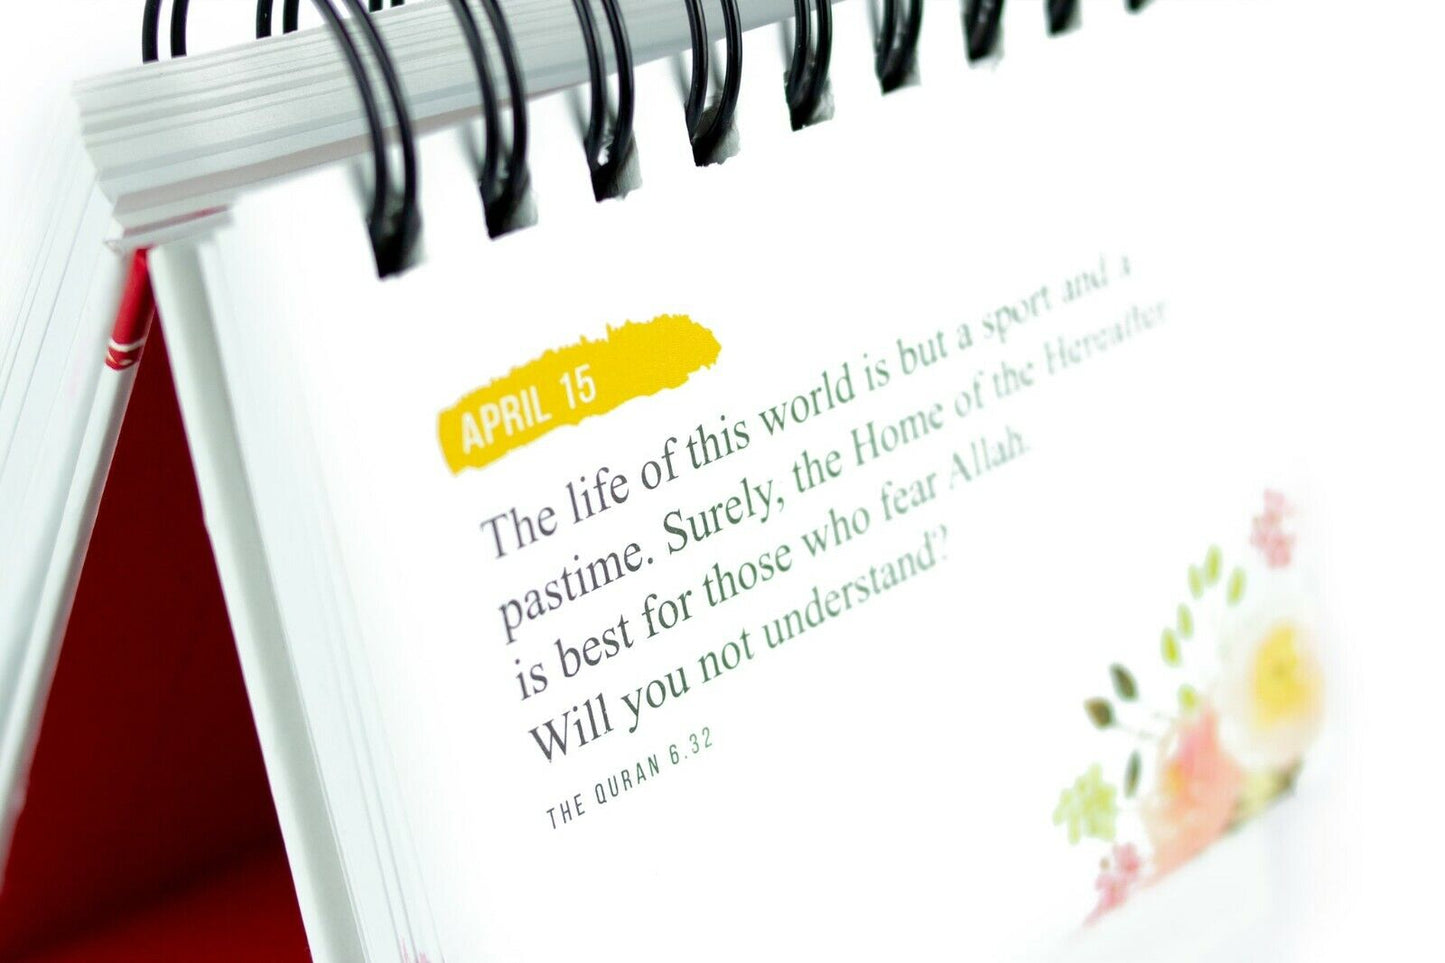 APRIL 15
The life of this world is but a sport and a
pastime. Surely, the Home of the Hereafter
is best for those who fear Allah.
Will you not understand?
THE QURAN 6.32